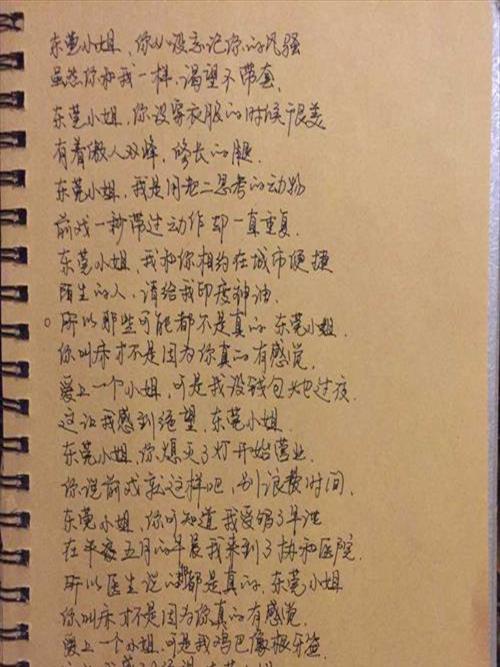 东莞小姐,你从没忘记你的风骚
虽然你和我一样,渴望不带套,
东莞小姐,你没穿衣服的时候很美
有着傲人双峰,修长的腿.
东莞小姐,我是用老二思考的动物
前戏一秒带过动作却一直重复.
东莞小姐,我和你相约在城市便捷
陌生的人,请给我印度神油.
所以那些可能都不是真的 东莞小姐.
你叫床才不是因为你真的有感觉.
爱上一个小姐,可是我没钱包她过夜.
这让我感到绝望,东莞小姐.
东莞小姐.你熄灭了灯开始营业.
你说前戏就这样吧,别浪费时间.
东莞小姐,你可知道我受够了早泄
在平淡五月的早晨我来到了协和医院.
所以医生说的都是真的.东莞小姐
你叫床才不是因为你真的有感觉.
爱上一个小姐.可是我鸡巴像根牙签